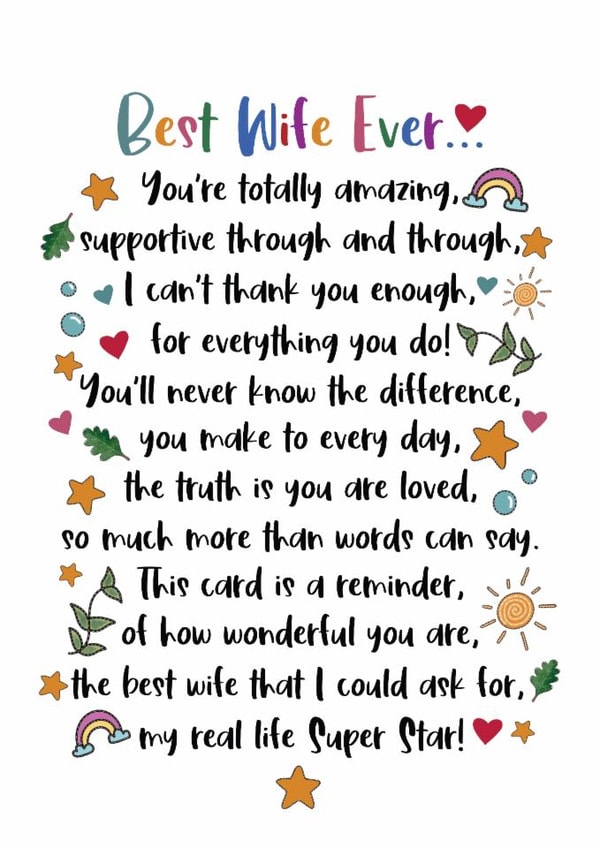 Best Wife Ever...
You're totally amazing,
supportive through and through,
I can't thank you enough,
for everything you do!
You'll never know the difference,
you make to every day,
the truth is you are loved,
so much more than words can say.
This card is a reminder,
of how wonderful you are,
the best wife that I could ask for,
my real life Super Star!